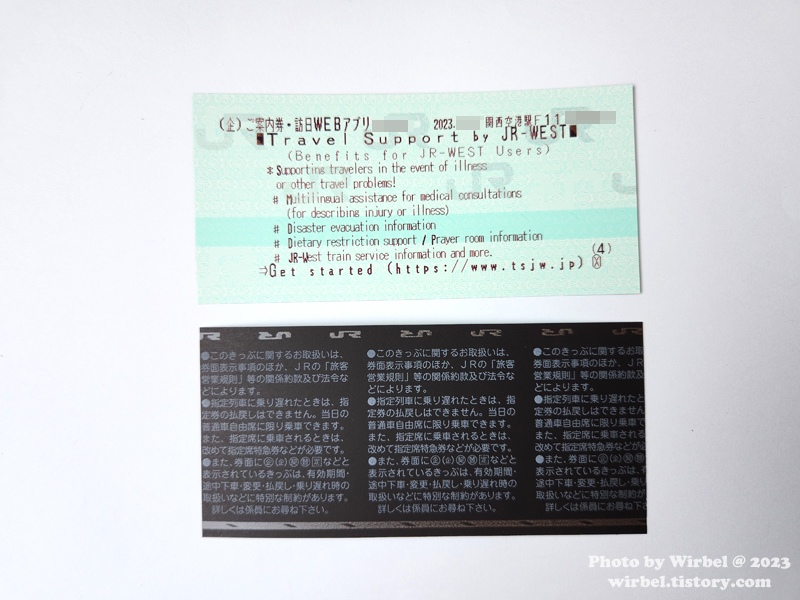 (企)ご案内券・訪日WEBアプリ 2023. 関西空港駅F11
■Travel Support by JR-WEST■
(Benefits for JR-WEST Users)
*Supporting travelers in the event of illness
or other travel problems!
# Multilingual assistance for medical consultations
(for describing injury or illness)
# Disaster evacuation information
# Dietary restriction support / Prayer room information
# JR-West train service information and more.
(4)
⇒Get started (https://www.tsjw.jp)
JR JR JR JR JR JR
●このきっぷに関するお取扱いは、
券面表示事項のほか、JRの「旅客
営業規則」等の関係約款及び法令な
どによります。
●指定列車に乗り遅れたときは、指
定券の払戻しはできません。当日の
普通車自由席に限り乗車できます。
また、指定席に乗車されるときは、
改めて指定席特急券などが必要です。
●また、券面に などと
表示されているきっぷは、有効期間・
途中下車・変更・払戻し・乗り遅れ時の
取扱いなどに特別な制約があります。
詳しくは係員にお尋ね下さい。
●このきっぷに関するお取扱いは、
券面表示事項のほか、JRの「旅客
営業規則」等の関係約款及び法令な
どによります。
●指定列車に乗り遅れたときは、指
定券の払戻しはできません。当日の
普通車自由席に限り乗車できます。
また、指定席に乗車されるときは、
改めて指定席特急券などが必要です。
●また、券面に などと
表示されているきっぷは、有効期間・
途中下車・変更・払戻し・乗り遅れ時の
取扱いなどに特別な制約があります。
詳しくは係員にお尋ね下さい。
●このきっぷに関するお取扱
券面表示事項のほか、JRの
営業規則」等の関係約款及び
どによります。
●指定列車に乗り遅れたとき
定券の払戻しはできません。
普通車自由席に限り乗車でき
また、指定席に乗車されると
改めて指定席特急券などが必
●また、券面に
表示されているきっぷは、有
途中下車・変更・払戻し・乗り
取扱いなどに特別な制約があ
詳しくは係員にお尋ね下さ
Photo by Wirbel @ 2023
wirbel.tistory.com